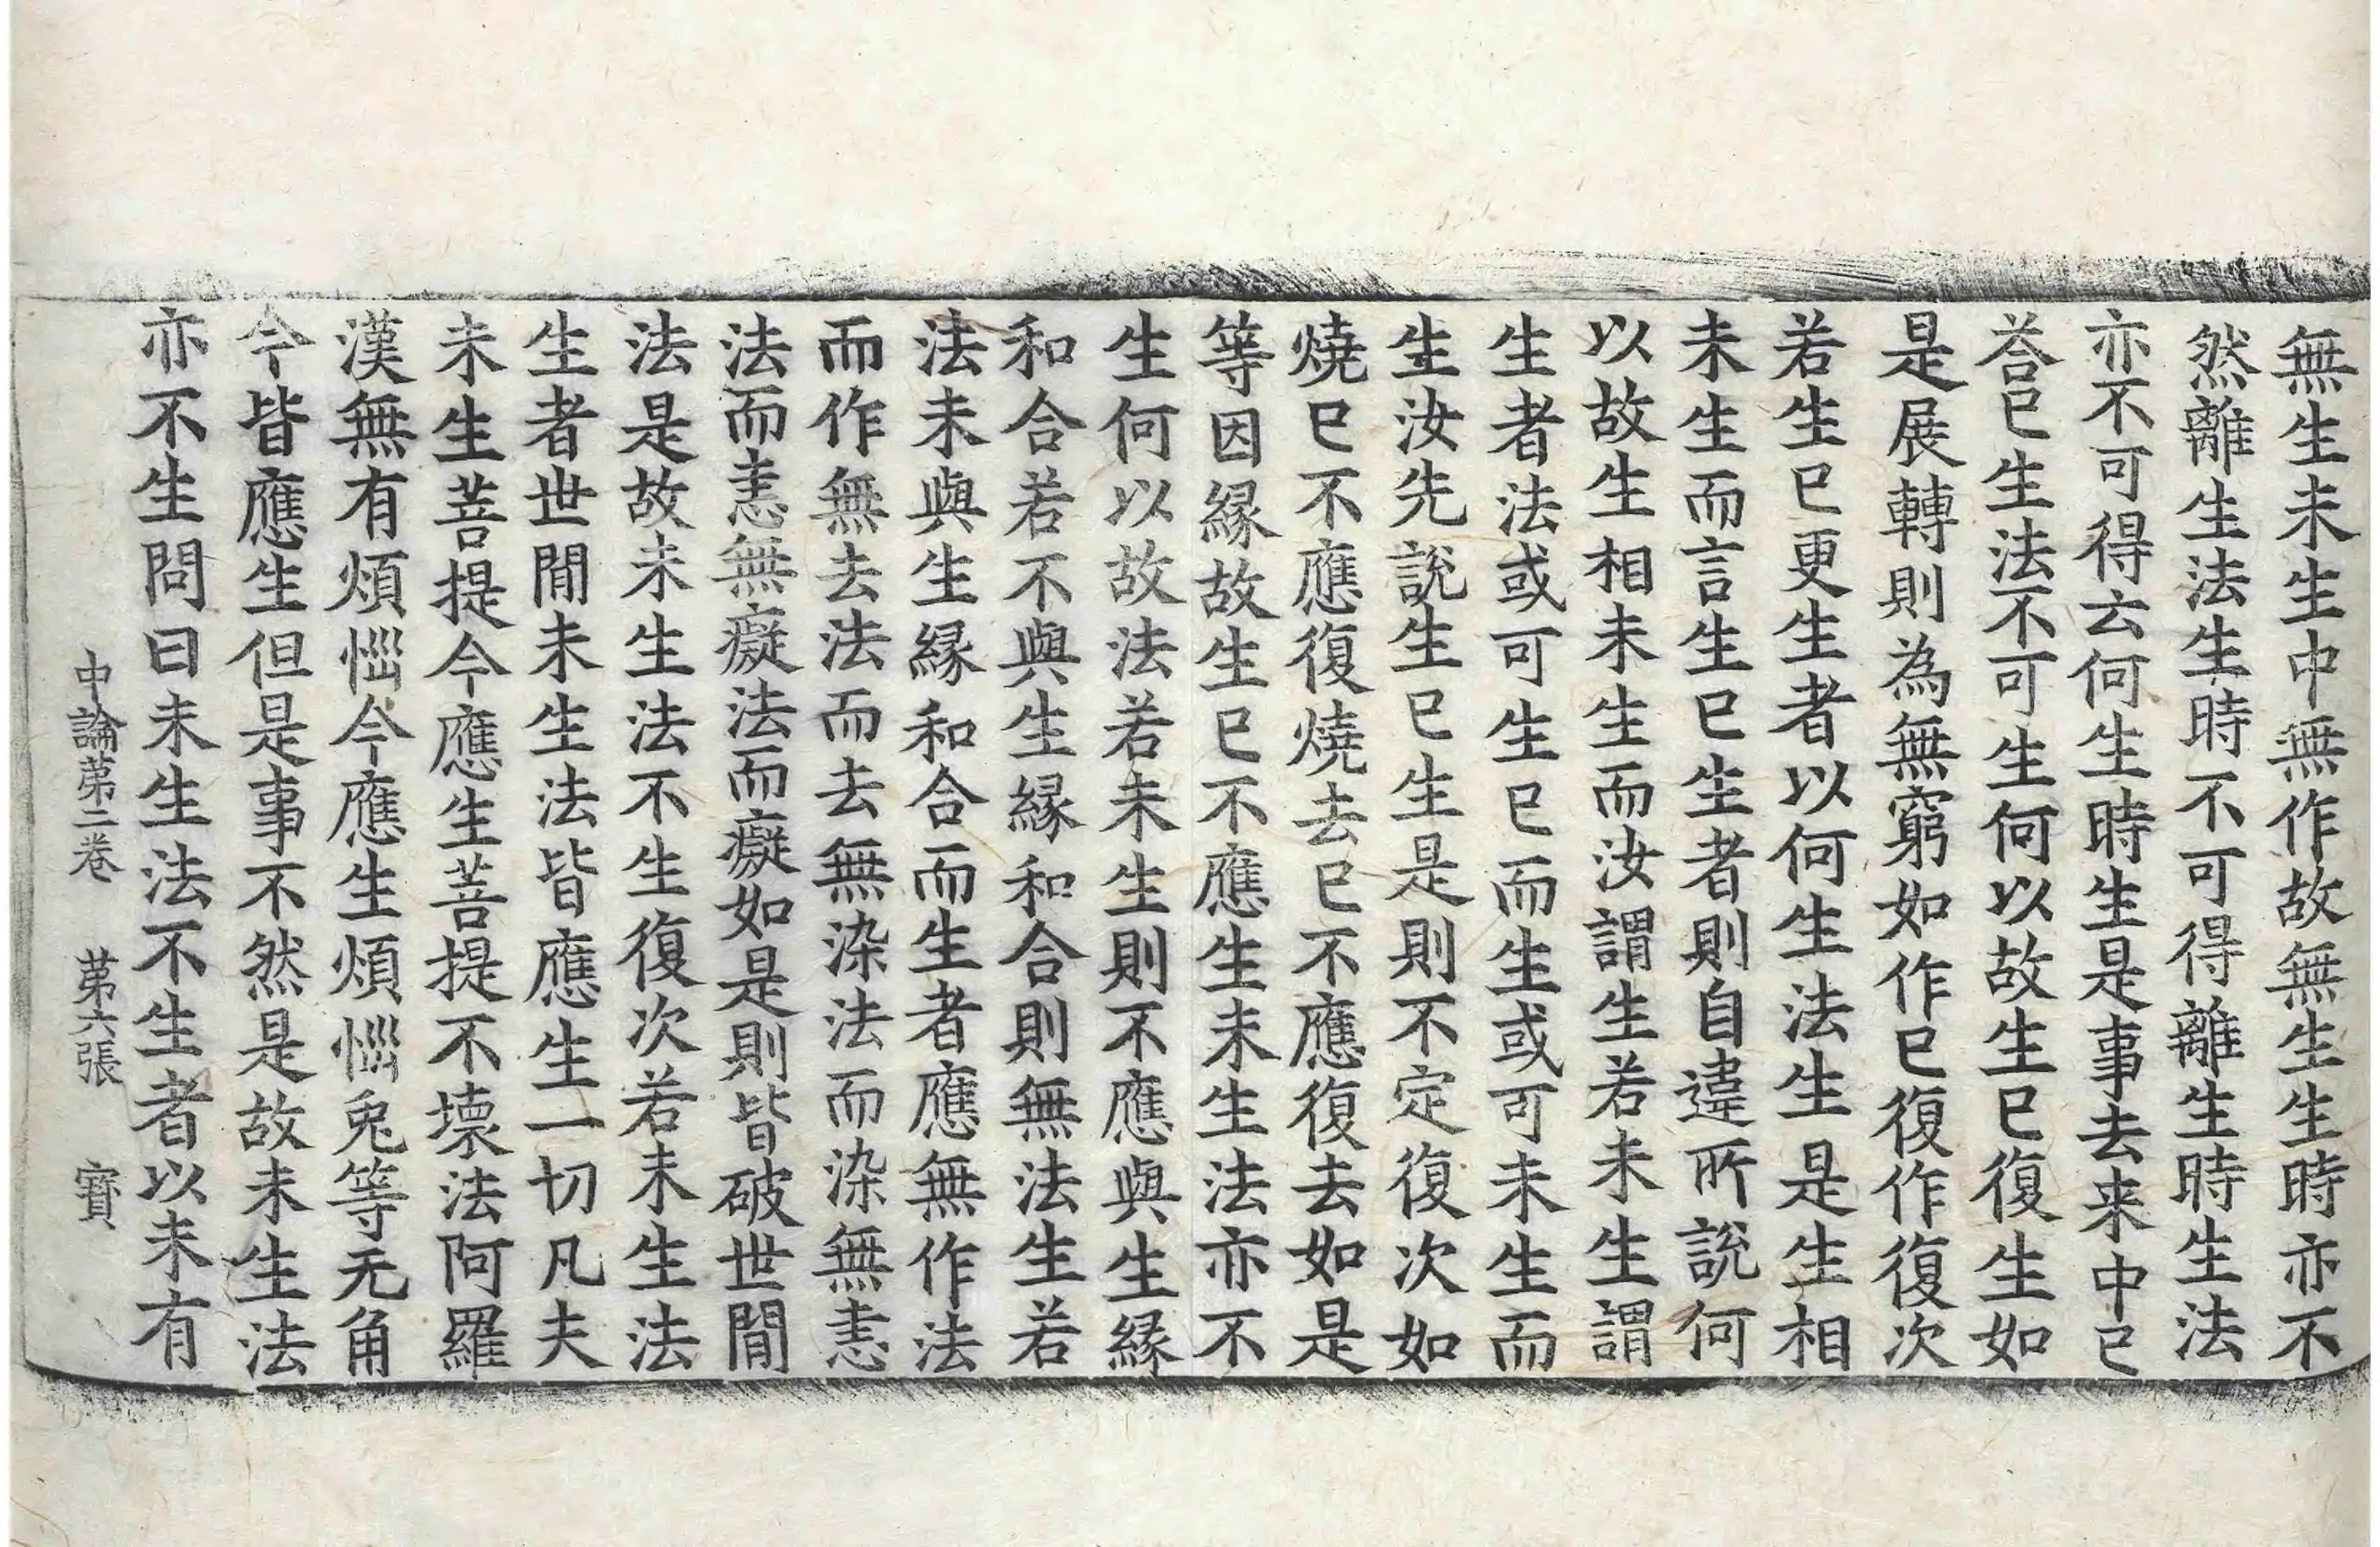 無生未生中無作故無生生時亦不
然離生法生時不可得離生時生法
亦不可得云何生時生是事去来中已
荅已生法不可生何以故生已復生如
是展轉則為無窮如作已復作復次
若生已更生者以何生法生是生相
未生而言生已生者則自違所說何
以故生相未生而汝謂生若未生謂
生者法或可生已而生或可未生而
生汝先說生已生是則不定復次如
燒已不應復燒去已不應復去如是
等因緣故生已不應生未生法亦不
生何以故法若未生則不應與生緣
和合若不與生緣和合則無法生若
法未與生緣和合而生者應無作法
而作無去法而去無染法而染無恚
法而恚無癡法而癡如是則皆破世間
法是故未生法不生復次若未生法
生者世間未生法皆應生一切凡夫
未生菩提今應生菩提不壞法阿羅
漢無有煩惱今應生煩惱兎等无角
今皆應生但是事不然是故未生法
亦不生問曰未生法不生者以未有
中論第二卷 第六張 寶